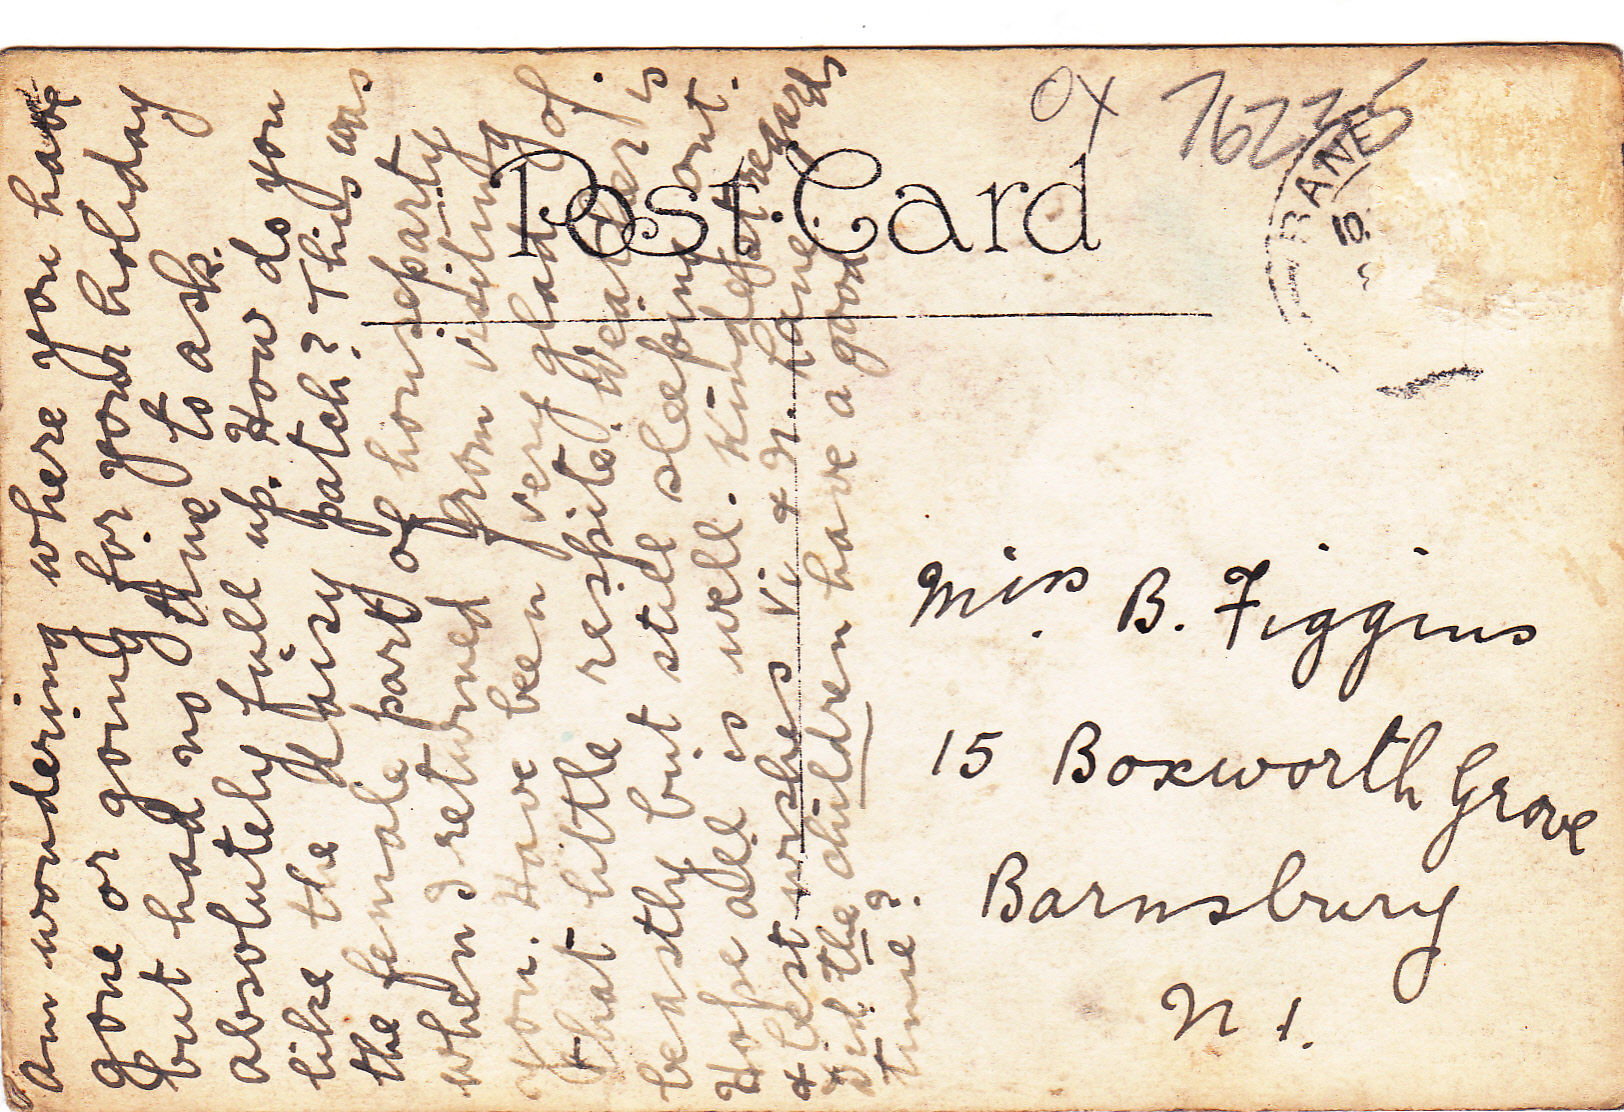 Am wondering where you have
gone or going for your holiday
but had no time to ask.
absolutely full up. How do you
like the daisy patch? This was
the female part of houseparty
when I returned from visiting
you. Have been very glad of
that little respite. Weather is
beastly but still sleeping out.
Hope all is well. Kindest regards
& best wishes Vi & N. Lane.
Did the children have a good
time?
Post Card
OX 76235
BANE
10
Miss B. Figgins
15 Boxworth Grove
Barnsbury
N 1.